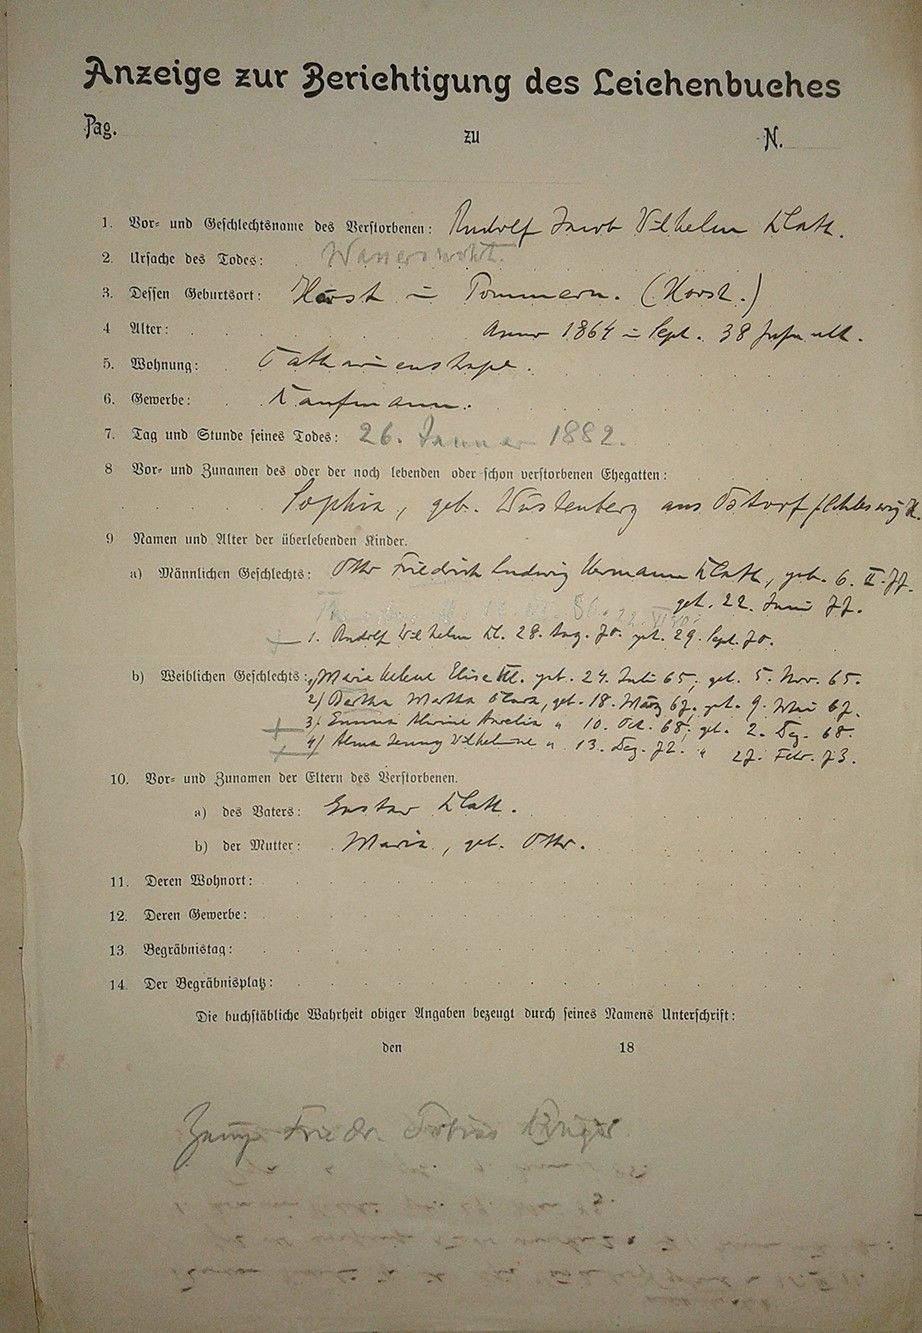 Anzeige zur Berichtigung des Leichenbuches
Pag. zu N.
1. Vor- und Geschlechtsname des Verstorbenen: Rudolf Jacob Wilhelm Klatt.
2. Ursache des Todes:
3. Dessen Geburtsort: Horst in Pommern. (Horst.)
4 Alter: Anno 1864 in Sept. 38 Jahre alt.
5. Wohnung:
6. Gewerbe: Kaufmann.
7. Tag und Stunde seines Todes: 26. Januar 1882.
8 Vor- und Zunamen des oder der noch lebenden oder schon verstorbenen Ehegatten:
Sophia, geb. Wüstenberg aus
9 Namen und Alter der überlebenden Kinder.
a) Männlichen Geschlechts: Otto Friedrich Ludwig Hermann Klatt, geb. 6. II. 77.
get. 22. Juni 77.
1. Rudolf Wilhelm Kl. 28. Aug. 70. get. 29. Sept. 70.
b) Weiblichen Geschlechts: 1) Maria Helene Elise Kl. geb. 24. Juli 65, get. 5. Nov. 65.
2) Bertha Martha Clara, geb. 18. März 67. get. 9. Mai 67.
3) Emma Aurelia " 10. Oct. 68, get. 2. Dez. 68.
4) Alma Jenny Wilhelmine " 13. Dez. 72. " 27. Febr. 73.
10. Vor- und Zunamen der Eltern des Verstorbenen.
a) des Vaters: Gustav Klatt.
b) der Mutter: Maria, geb. Otto.
11. Deren Wohnort:
12. Deren Gewerbe:
13. Begräbnistag:
14. Der Begräbnisplatz:
Die buchstäbliche Wahrheit obiger Angaben bezeugt durch seines Namens Unterschrift:
den 18
Zeuge Friedr. Tobias Krüger